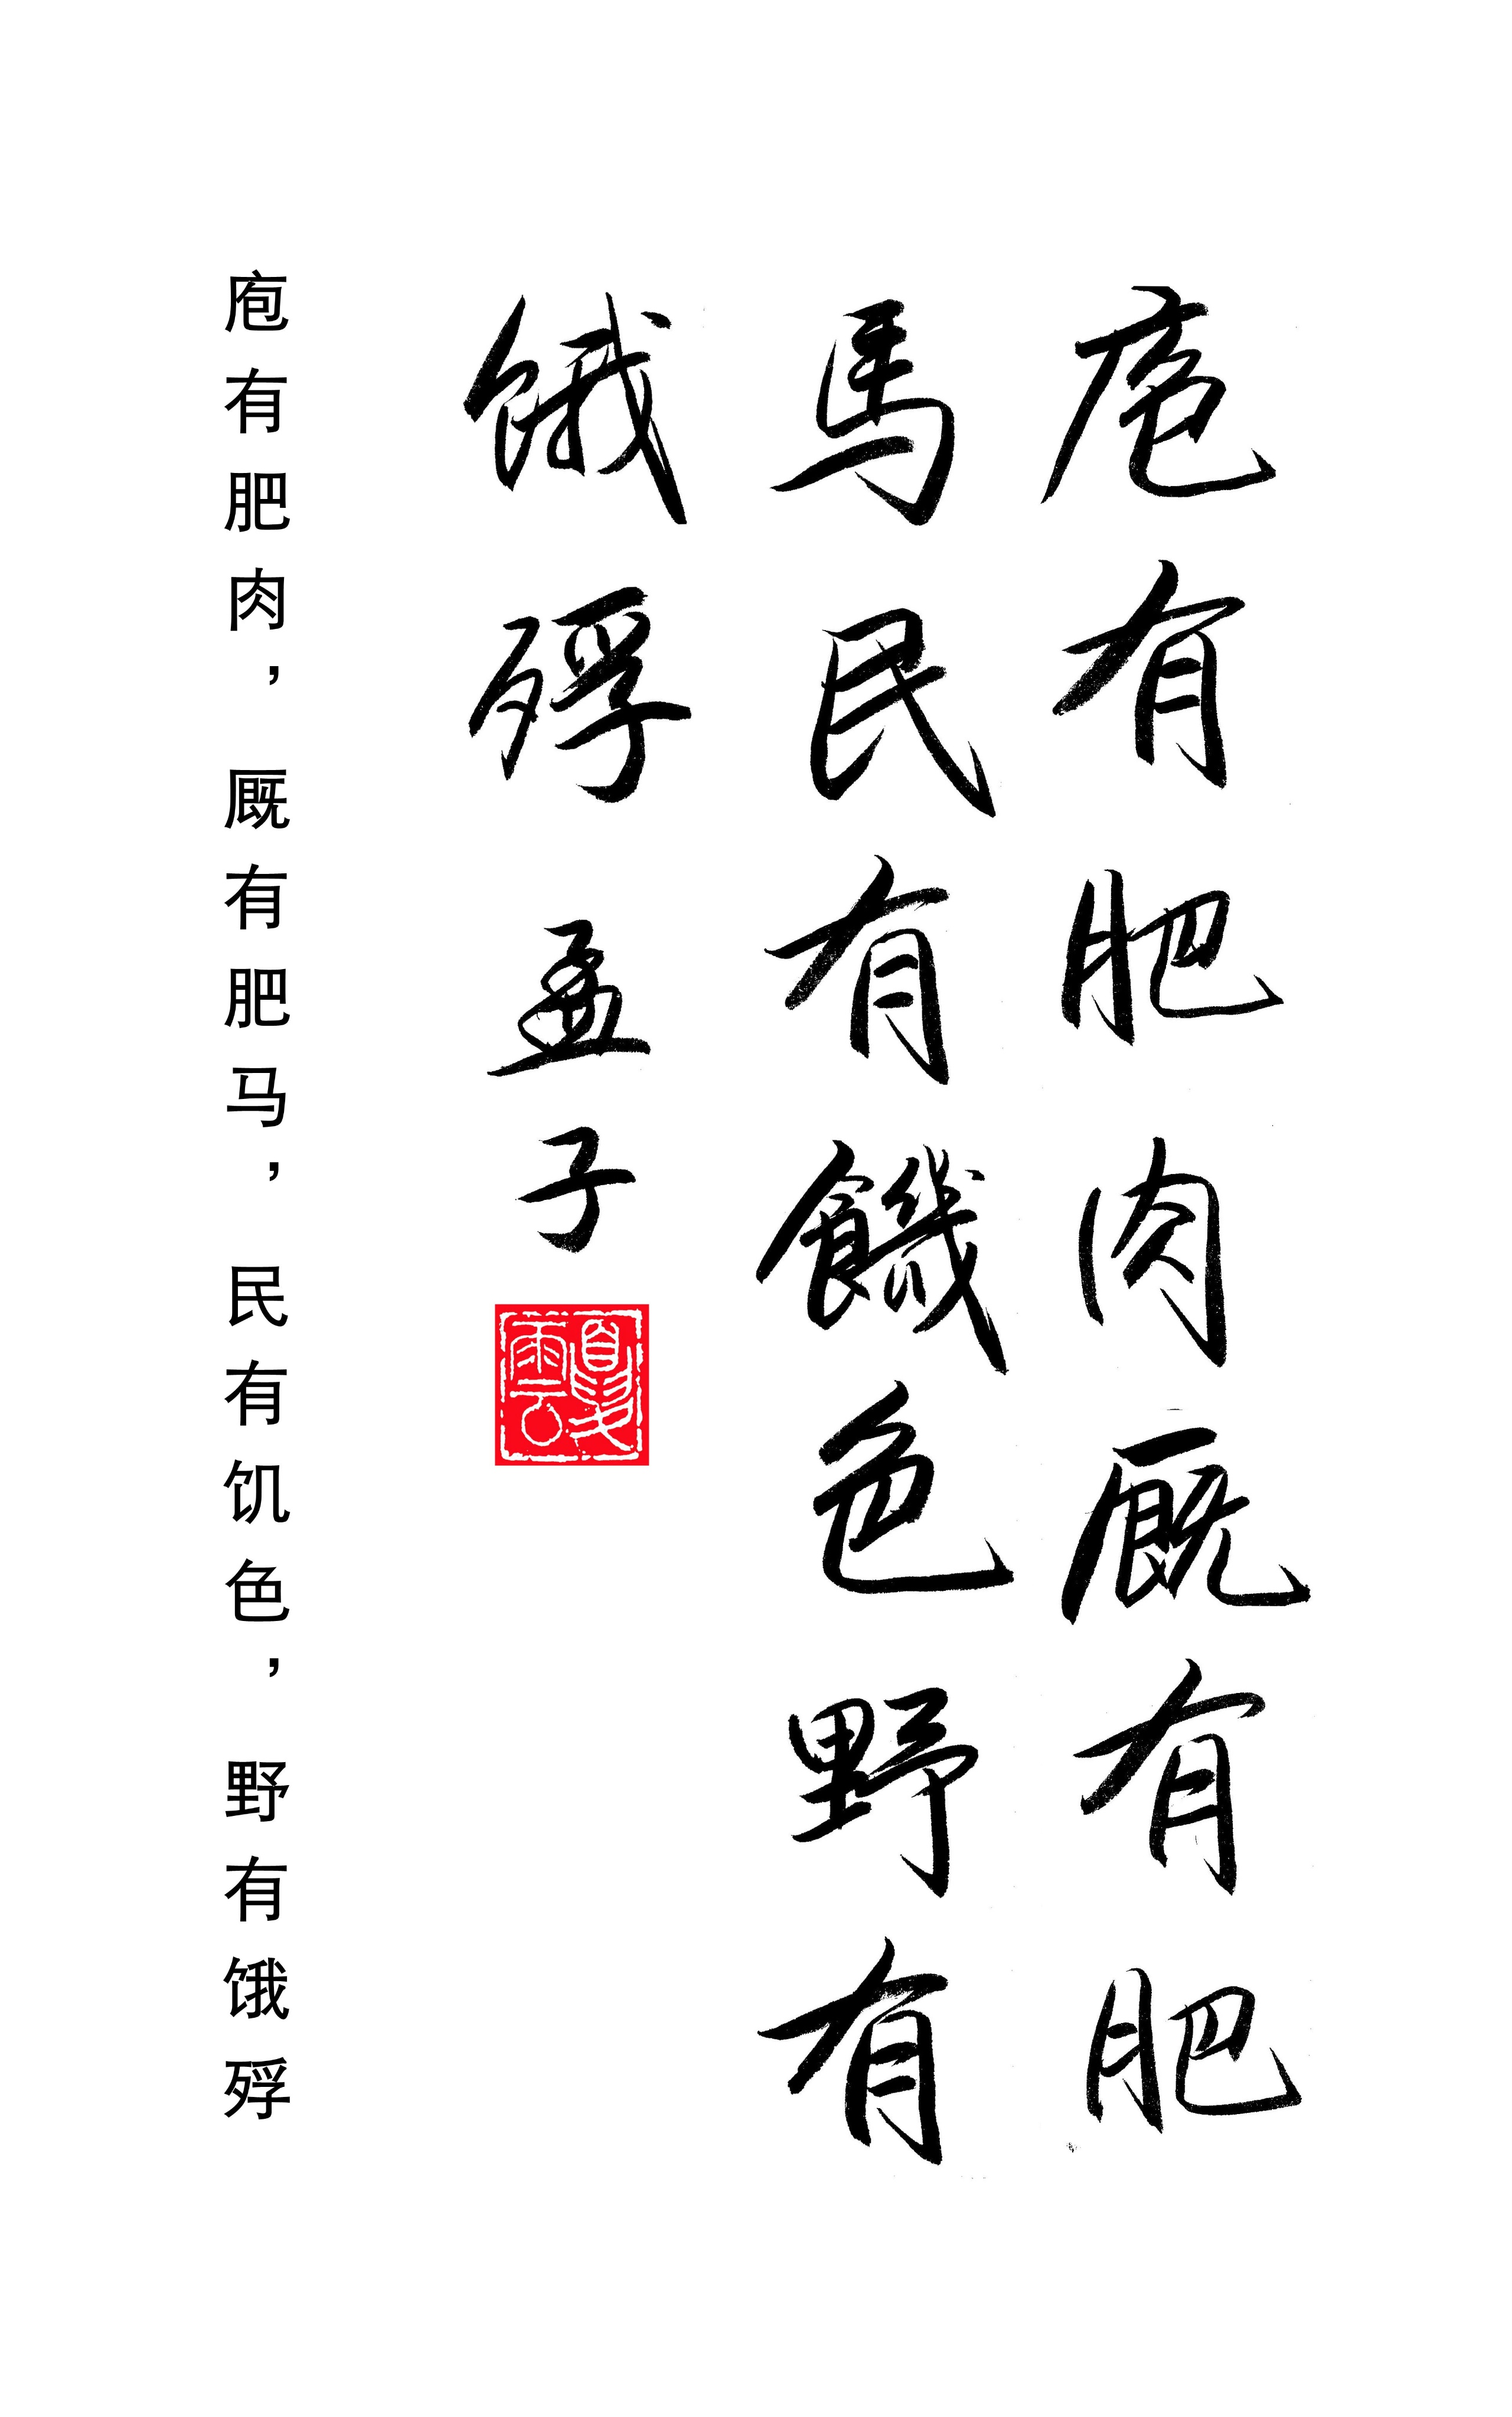 庖有肥肉厩有肥
馬民有饑色野有
餓殍 孟子
夏雲
庖有肥肉，厩有肥马，民有饥色，野有饿殍